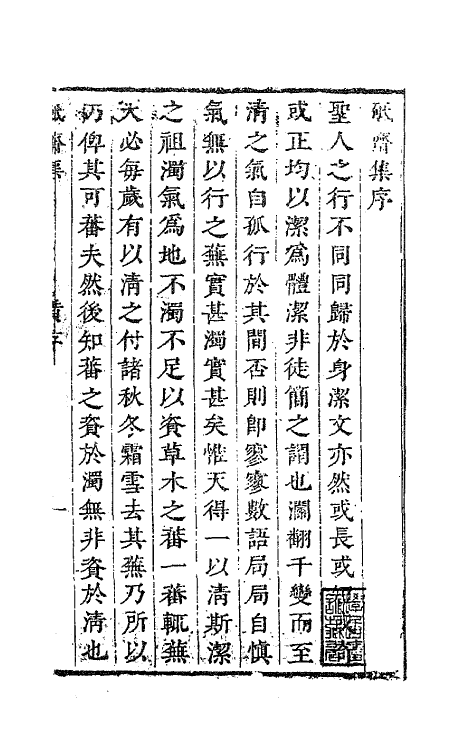 砥齋集序
聖人之行不同同歸於身潔文亦然或長或
或正均以潔爲體潔非徒簡之謂也瀾翻千變而至
清之氣自孤行於其間否則即寥寥數語局局自慎
氣無以行之蕪實甚濁實甚矣惟天得一以清斯潔
之祖濁氣爲地不濁不足以資草木之蕃一蕃輒蕪
天必每歲有以清之付諸秋冬霜雪去其蕪乃所以
仍俾其可蕃夫然後知蕃之資於濁無非資於清也
砥齋集
序
一